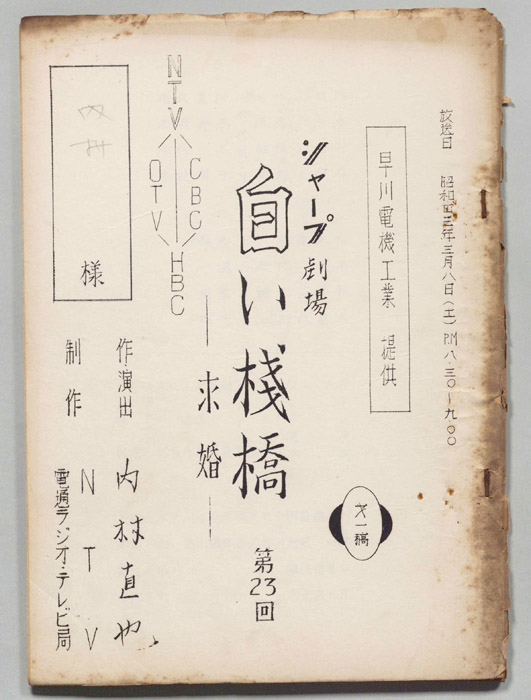 放送日 昭和卅三年三月八日(土) P.M 八・三〇〜九・〇〇
早川電機工業 提供
才一稿
シャープ劇場
白い棧橋
第23回
―求婚―
NTV
CBC
OTV
HBC
作演出 内村直也
制作 NTV
電通ラジオ・テレビ局
内村 様